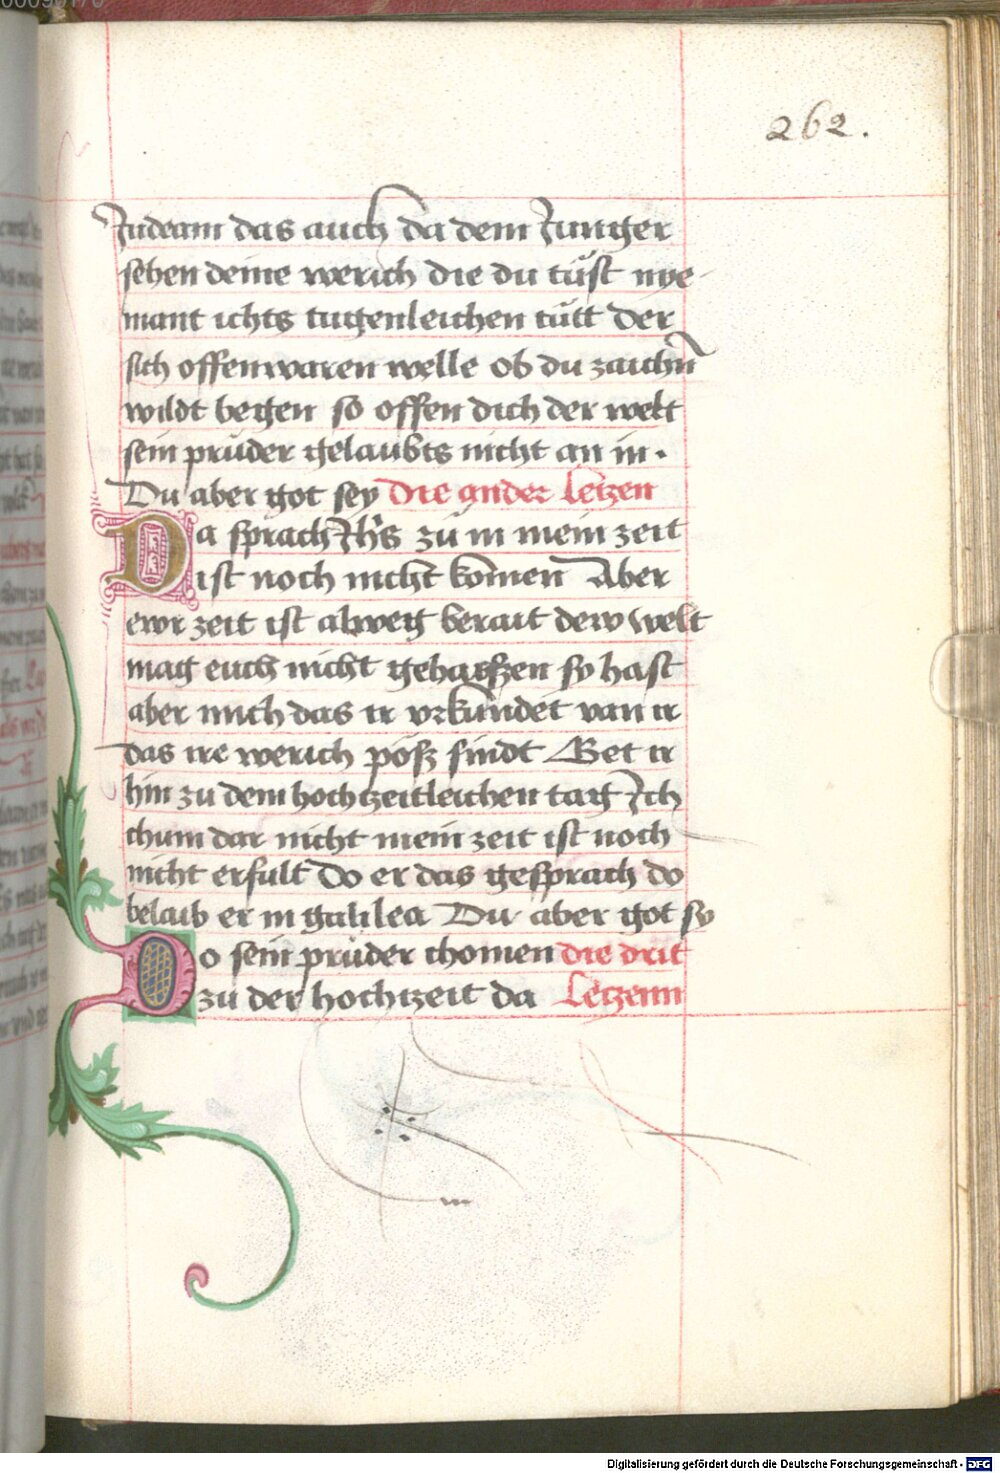 262.
Judeam das auch da dein Junger
sehen deine werich die du tuest nye
mant ichts tugenleichen tutt der
sich offenwaren welle ob du zaichn̄
wildt begen so offen dich der welt
sein prüder gelaubts nicht an in.
Du aber got sey Die ander Letzen
Da sprach Jhs zu in mein zeit
ist noch nicht komen Aber
ewr zeit ist alweg berait dew welt
mag euch nicht gehasszen sy hast
aber mich das ir vrkundet van ir
das ire werich pösz sindt Get ir
hin zu dem hochczeitleichen tag Ich
chum dar nicht mein zeit ist noch
nicht erfult Do er das gesprach do
belaib er in galilea Du aber got sy
Do sein prüder chomen die drit
zu der hochtzeit da Letzenn
Digitalisierung gefördert durch die Deutsche Forschungsgemeinschaft - DFG